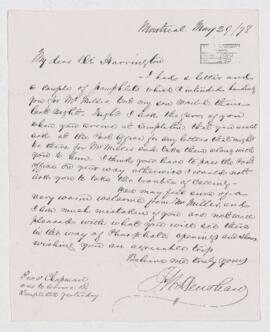 Montreal May 29/78
My dear Dr Harrington
I had a letter and
a couple of pamphlets which I intended handing
you for Mr Miller but my son mailed them
last night. Might I ask the favor of you
when you arrive at Templeton that you will
ask at the Post Office for any letters that might
be there for Mr Miller and take them along with
you to him. I think you have to pass the Post
office on your way otherwise I would not
ask you to take the trouble of calling.
You may feel sure of a
very warm welcome from Mr Miller and
I am much mistaken if you are not well
pleased with what you will see there
in the way of Phosphate openings and
wishing you an agreeable trip
Believe me truly yours
Prof Chapman
was to arrive at
Templeton yesterday